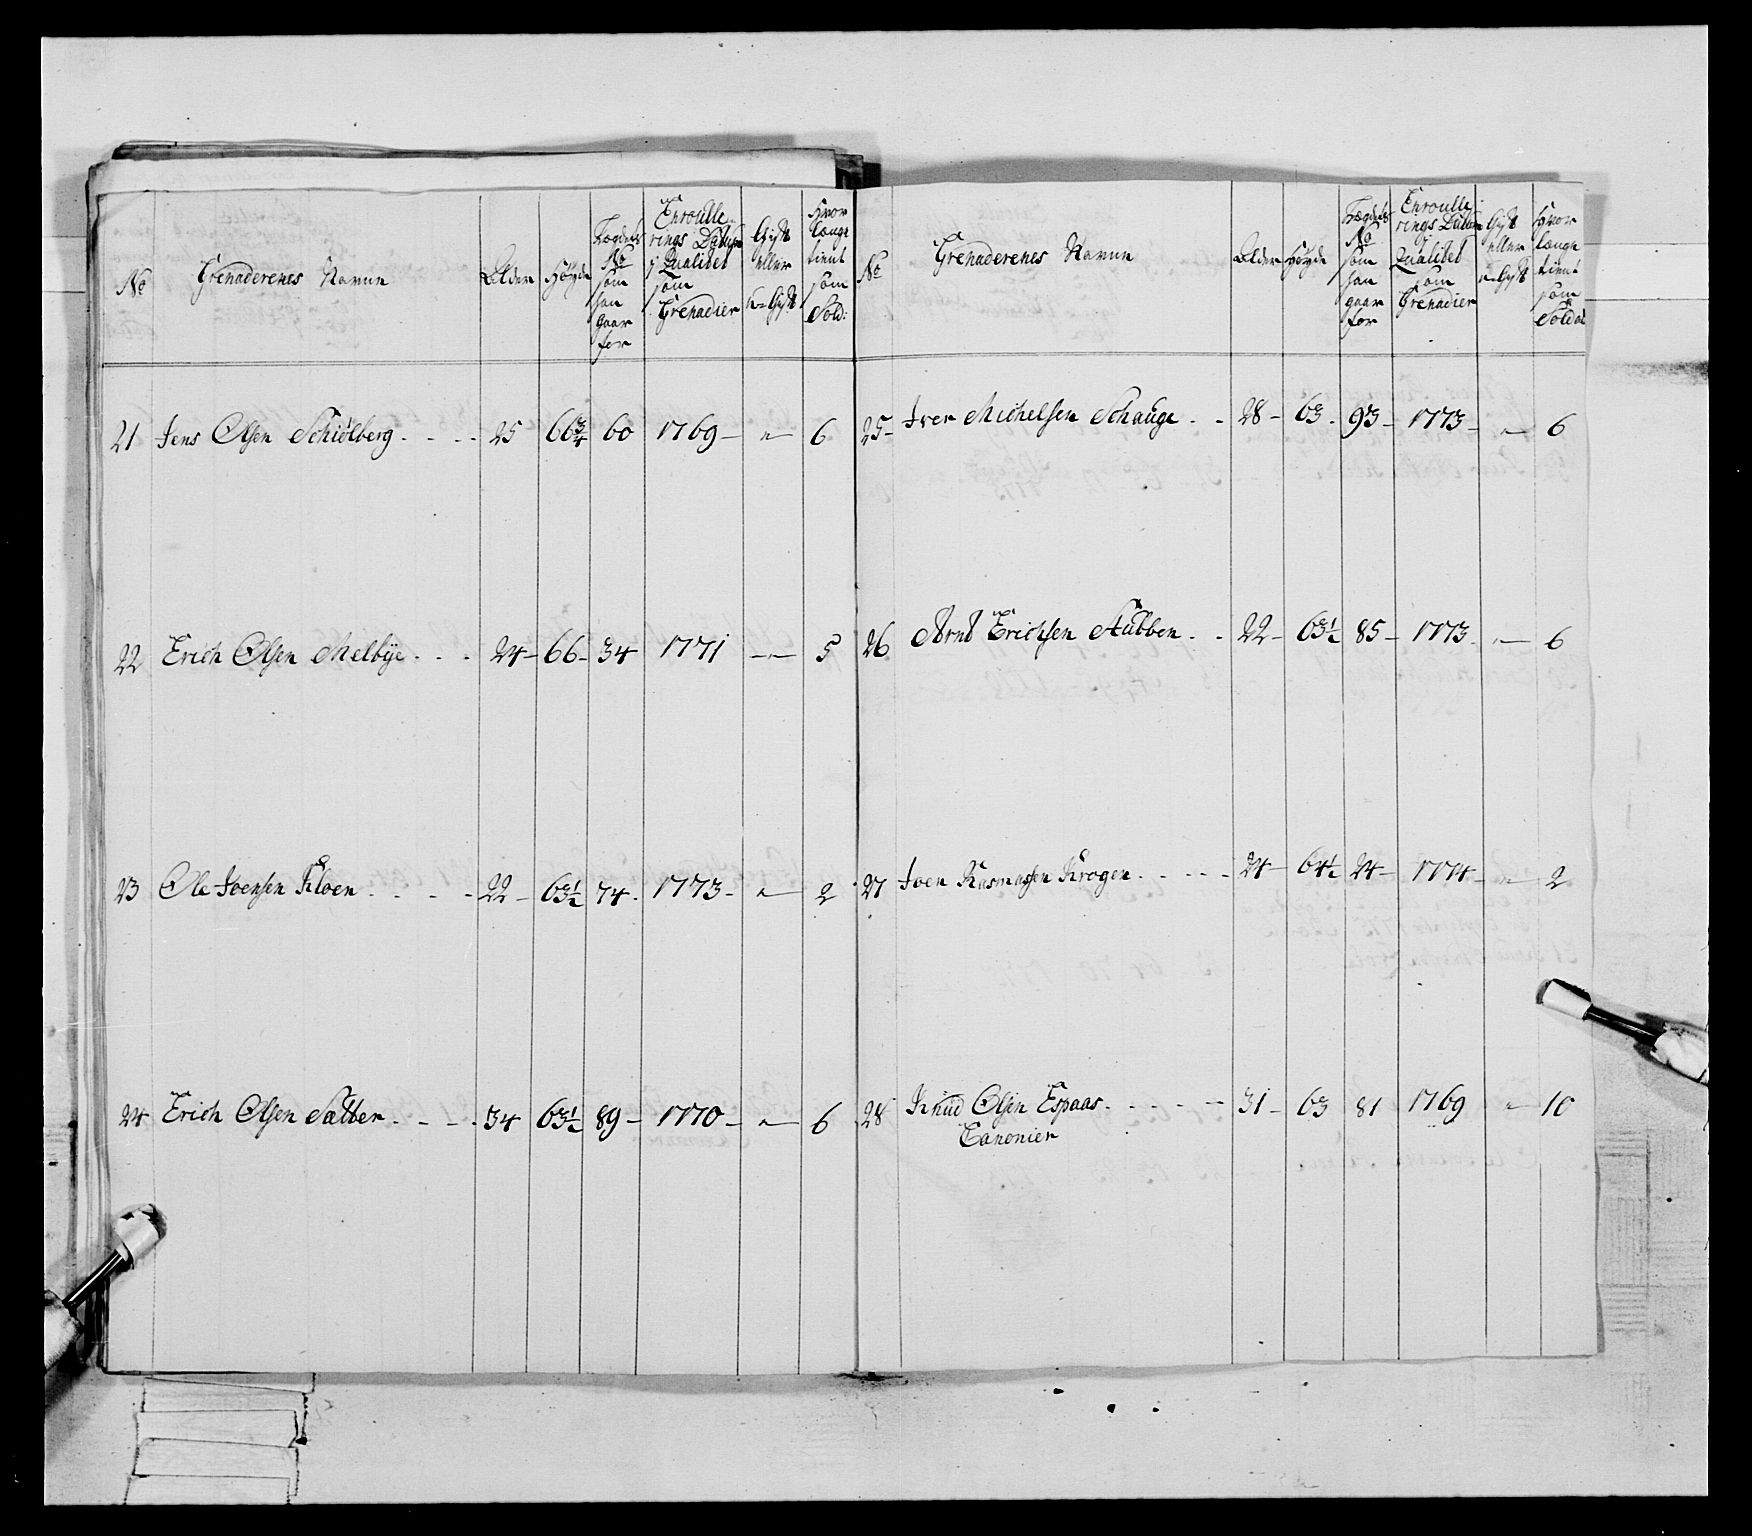 No Grenaderenes Navne Alder Høyde Lægdets No som han gaar for Enroulle rings Datum j Qualitet som Grenadier Gift eller u-Gift Hvor længe tient som Sold:
21 Jens Olsen Schiølberg 25 66 3/4 60 1769 u 6
22 Erich Olsen Melbye 24 66 34 1771 u 5
23 Ole Joensen Kloen 22 63 1/2 74 1773 u 2
24 Erich Olsen Sætter 34 63 1/2 89 1770 u 6
No Grenaderenes Navne Alder Høyde Lægdets No som han gaar for Enroulle rings Datum Qualitet som Grenadier Gift eller u-Gift Hvor længe tient som Soldat
25 Iver Michelsen Schauge 28 63 93 1773 u 6
26 Arnt Erichsen Stubben 22 63 1/2 85 1773 u 6
27 Joen Rasmussen Krogen 24 64 1/2 24 1774 u 2
28 Knud Olsen Espaas 31 63 81 1769 u 10
Canonier